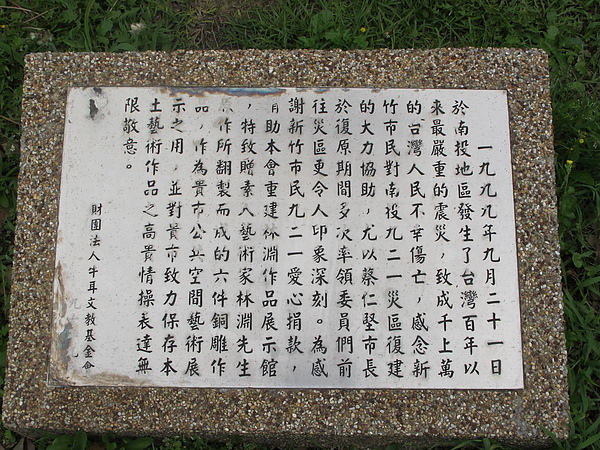 一九九九年九月二十一日
於南投地區發生了台灣百年以
來最嚴重的震災，致成千上萬
的台灣人民不幸傷亡，感念新
竹市民對南投九二一災區復建
的大力協助，尤以蔡仁堅市長
於復原期間多次率領委員們前
往災區更令人印象深刻。為感
謝新竹市民九二一愛心捐款，
助本會重建林淵作品展示館
，特致贈素人藝術家林淵先生
作所翻製而成的六件銅雕作
品，作為貴市公共空間藝術展
示之用，並對貴市致力保存本
土藝術作品之高貴情操表達無
限敬意。
財團法人牛耳文教基金會